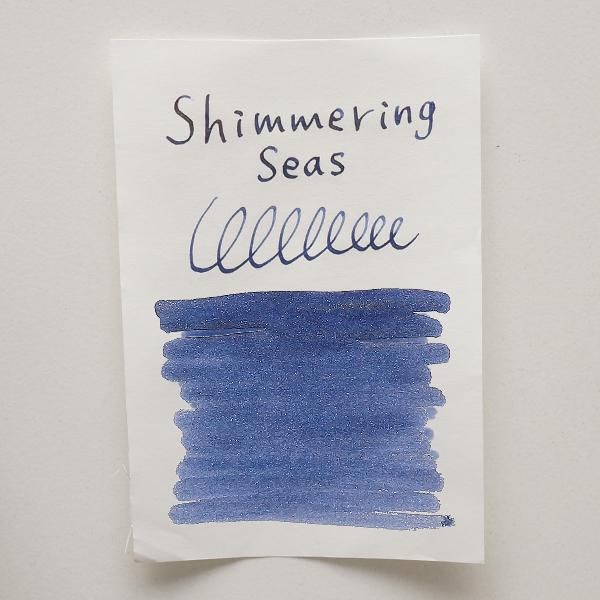 Shimmering
Seas